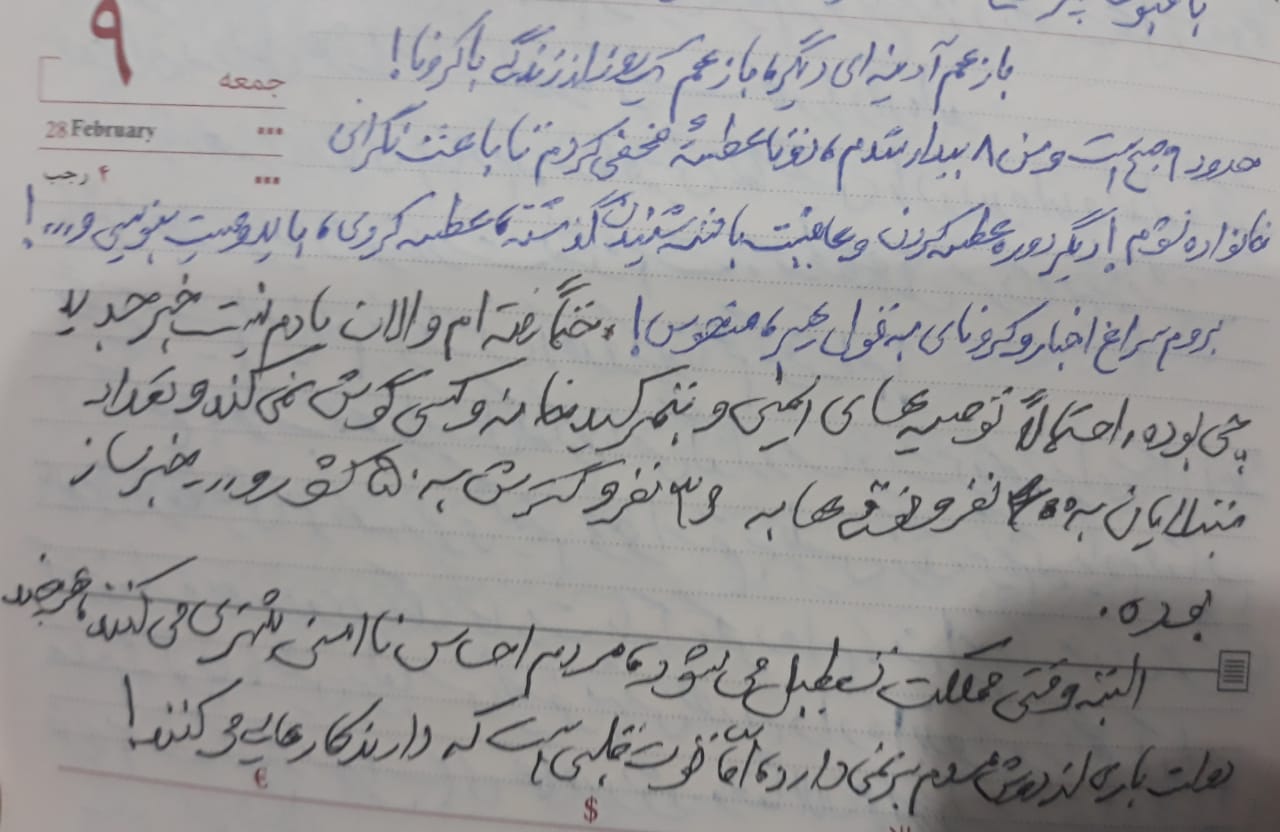 ۹
جمعه
28 February
۴ رجب
باز هم آدینه‌ای دیگر، باز هم یک روز از زندگی با کرونا!
حدود ۹ صبح است و من ۸ بیدار شدم، دو تا عطسهٔ مخفی کردم تا باعث نگرانی
خانواده نشوم! دیگر دوره عطسه کردن و عافیت باشه شنیدن گذشته، عطسه کردی، باید وصیت بنویسی و...!
بروم سراغ اخبار و کرونای به قول منحوس!
رفته ام و الان یادم نیست خبر جدید
چی بوده، احتمالاً توصیه های ایمنی و کسی گوش نمی کند و تعداد
مبتلایان به نفر و فوتی ها به ۳۶ نفر و گسترش به ۵۰ کشور و... خبرساز
بوده.
البته وقتی مملکت تعطیل می شود، مردم احساس ناامنی بیشتری می کنند، هرچند
دولت باری از دوش مردم برنمی دارد، امّا قوت قلبی است که دارند کارهایی می کنند!
€
$